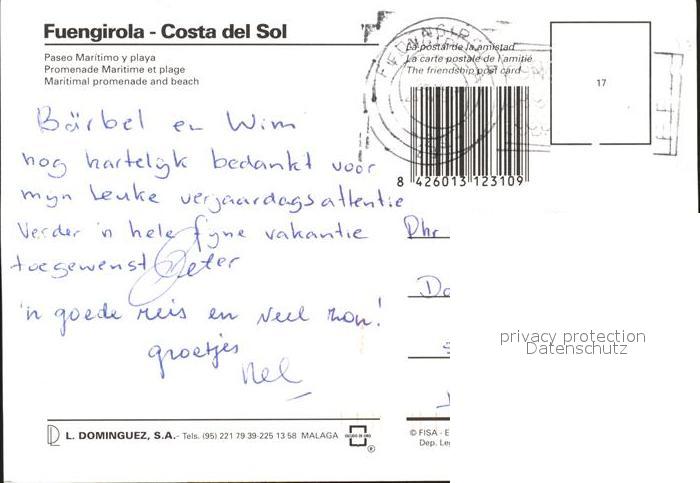 Fuengirola - Costa del Sol
Paseo Marítimo y playa
Promenade Maritime et plage
Maritimal promenade and beach
La postal de la amistad
La carte postale de l'amitié
The friendship post card
17
8 426013 123109
Bärbel en Wim
nog hartelijk bedankt voor
mijn leuke verjaardagsattentie
Verder 'n hele fijne vakantie
toegewenst Peter
'n goede reis en veel zon!
groetjes
Nel
Dhr
Da
privacy protection
Datenschutz
L. DOMINGUEZ, S.A. - Tels. (95) 221 79 39-225 13 58 MALAGA
®
© FISA - E
Dep. Le